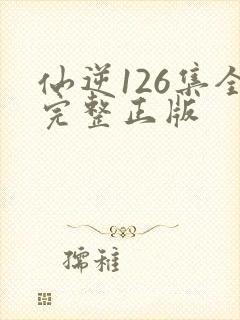 仙逆126集全
完整正版
孺稚